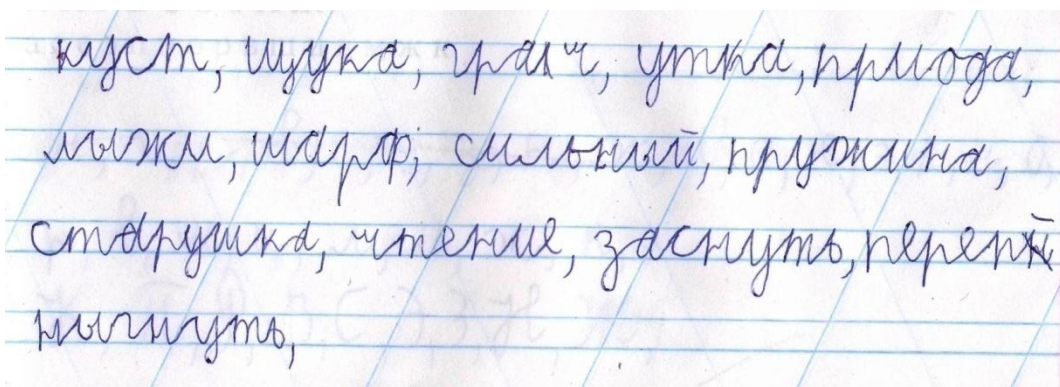 куст, щука, грач, утка, приода,
лыжи, шарф, сильный, пружина,
старушка, чтение, заснуть, переп
рыгнуть,